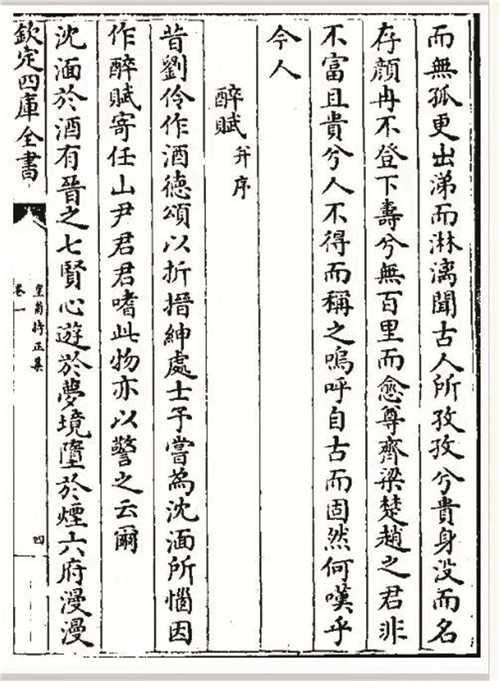 而無孤更出涕而淋漓聞古人所孜孜兮貴身没而名
存顔冉不登下壽兮無百里而愈尊齊梁楚趙之君非
不富且貴兮人不得而稱之嗚呼自古而固然何嘆乎
今人
醉賦并序
昔劉伶作酒德頌以折搢紳處士予嘗為沈湎所惱因
作醉賦寄任山尹君君嗜此物亦以警之云爾
沈湎於酒有晉之七賢心遊於夢境墮於煙六府漫漫
欽定四庫全書
皇甫持正集
卷一
四